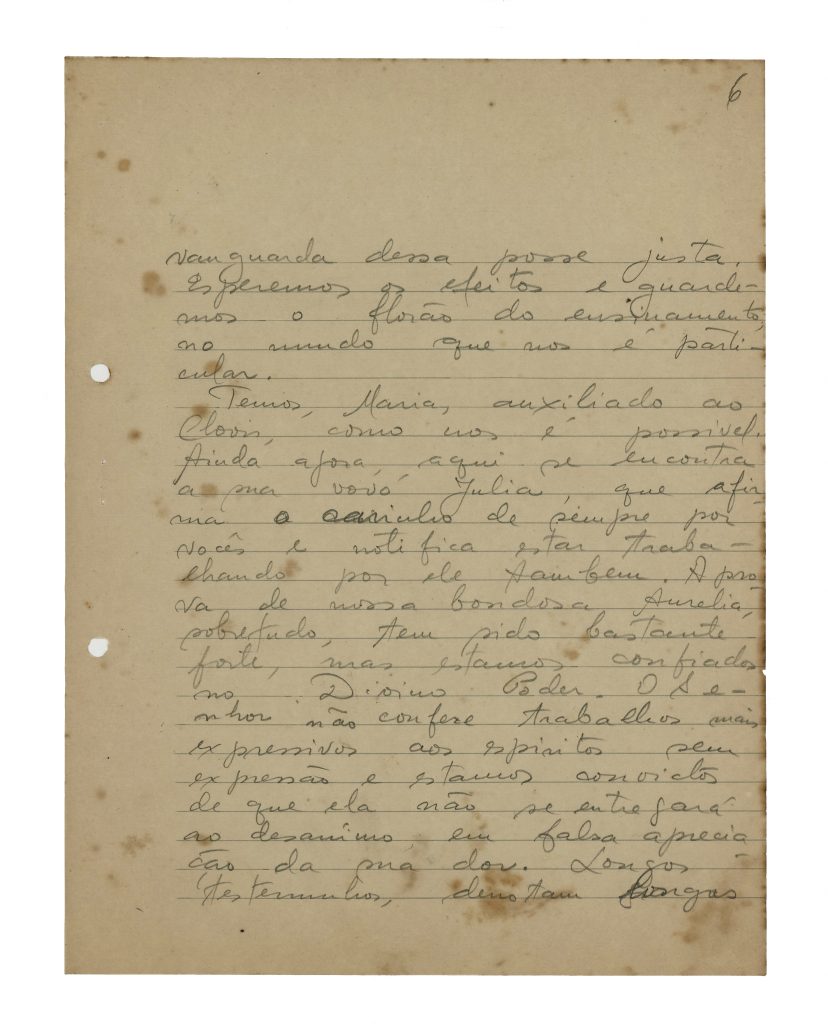 6
vanguarda dessa posse justa.
Esperemos os efeitos e guarde-
mos o florão do ensinamento,
no mundo que nos é parti-
cular.
Temos, Maria, auxiliado ao
Clovis, como nos é possivel.
Ainda agora, aqui se encontra
a sua vovó Julia, que afir-
ma o carinho de sempre por
vocês e notifica estar traba-
lhando por ele tambem. A pro-
va de nossa bondosa Aurelia,
sobretudo, tem sido bastante
forte, mas estamos confiados
no Divino Poder. O Se-
nhor não confere trabalhos mais
expressivos aos espiritos sem
expressão e estamos convictos
de que ela não se entregará
ao desanimo em falsa aprecia
ção da sua dor. Longos
testemunhos, denotam longas